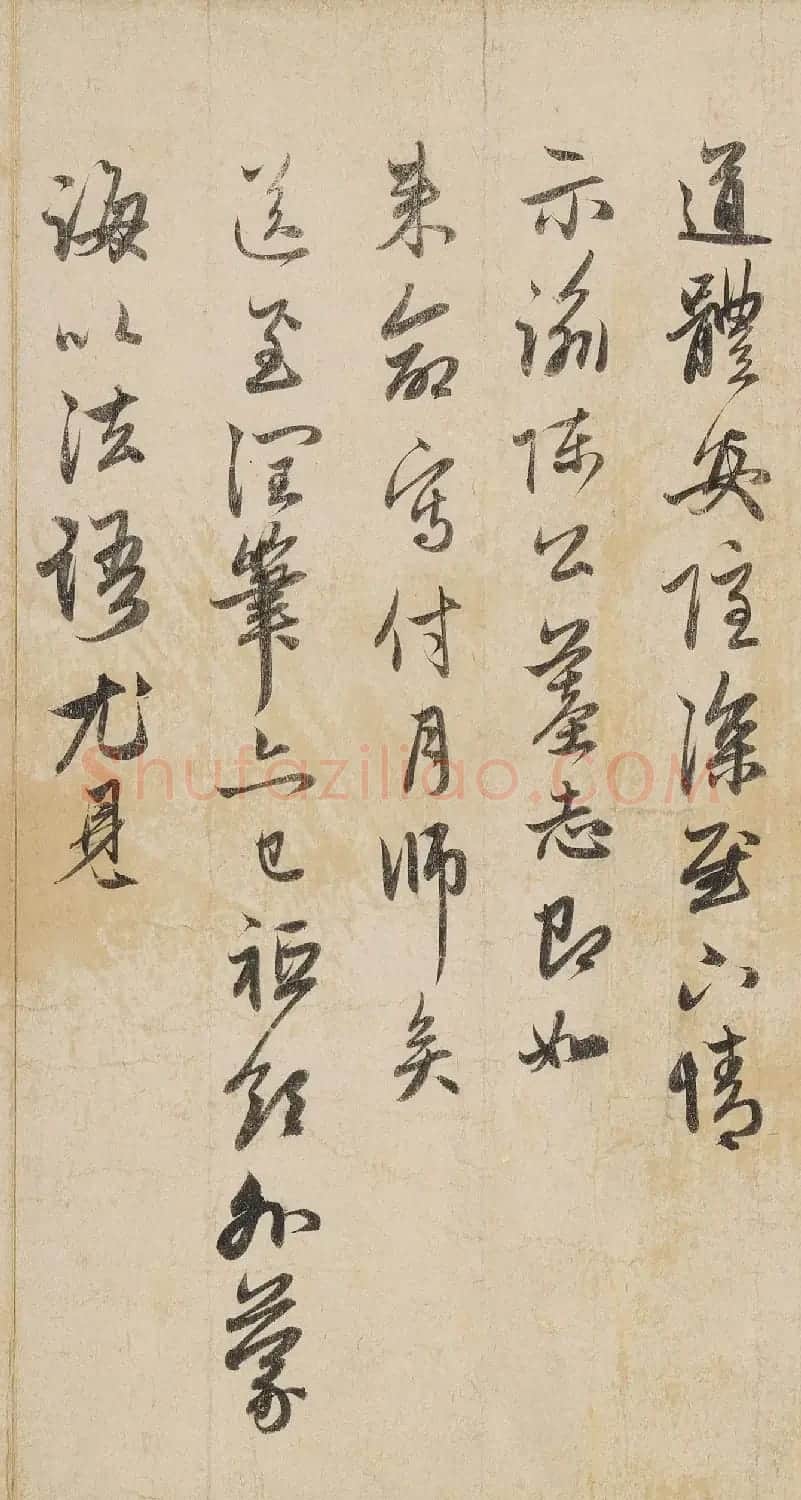 道體安隱深慰下情
示諭陳公墓志即如
來命寫付月師矣
送至潤筆亦已祗領外蒙
誨以法語尤見
Shufaziliao.COM